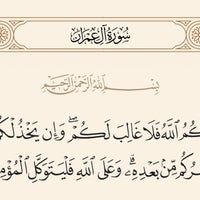 سُورَةُ آلِ عِمْرَانَ
بِسْمِ اللَّهِ الرَّحْمَٰنِ الرَّحِيمِ
كُمُ ٱللَّهُ فَلَا غَالِبَ لَكُمْ ۖ وَإِن يَخْذُلْكُ
رُكُم مِّنۢ بَعْدِهِۦ ۗ وَعَلَى ٱللَّهِ فَلْيَتَوَكَّلِ ٱلْمُؤْمِ